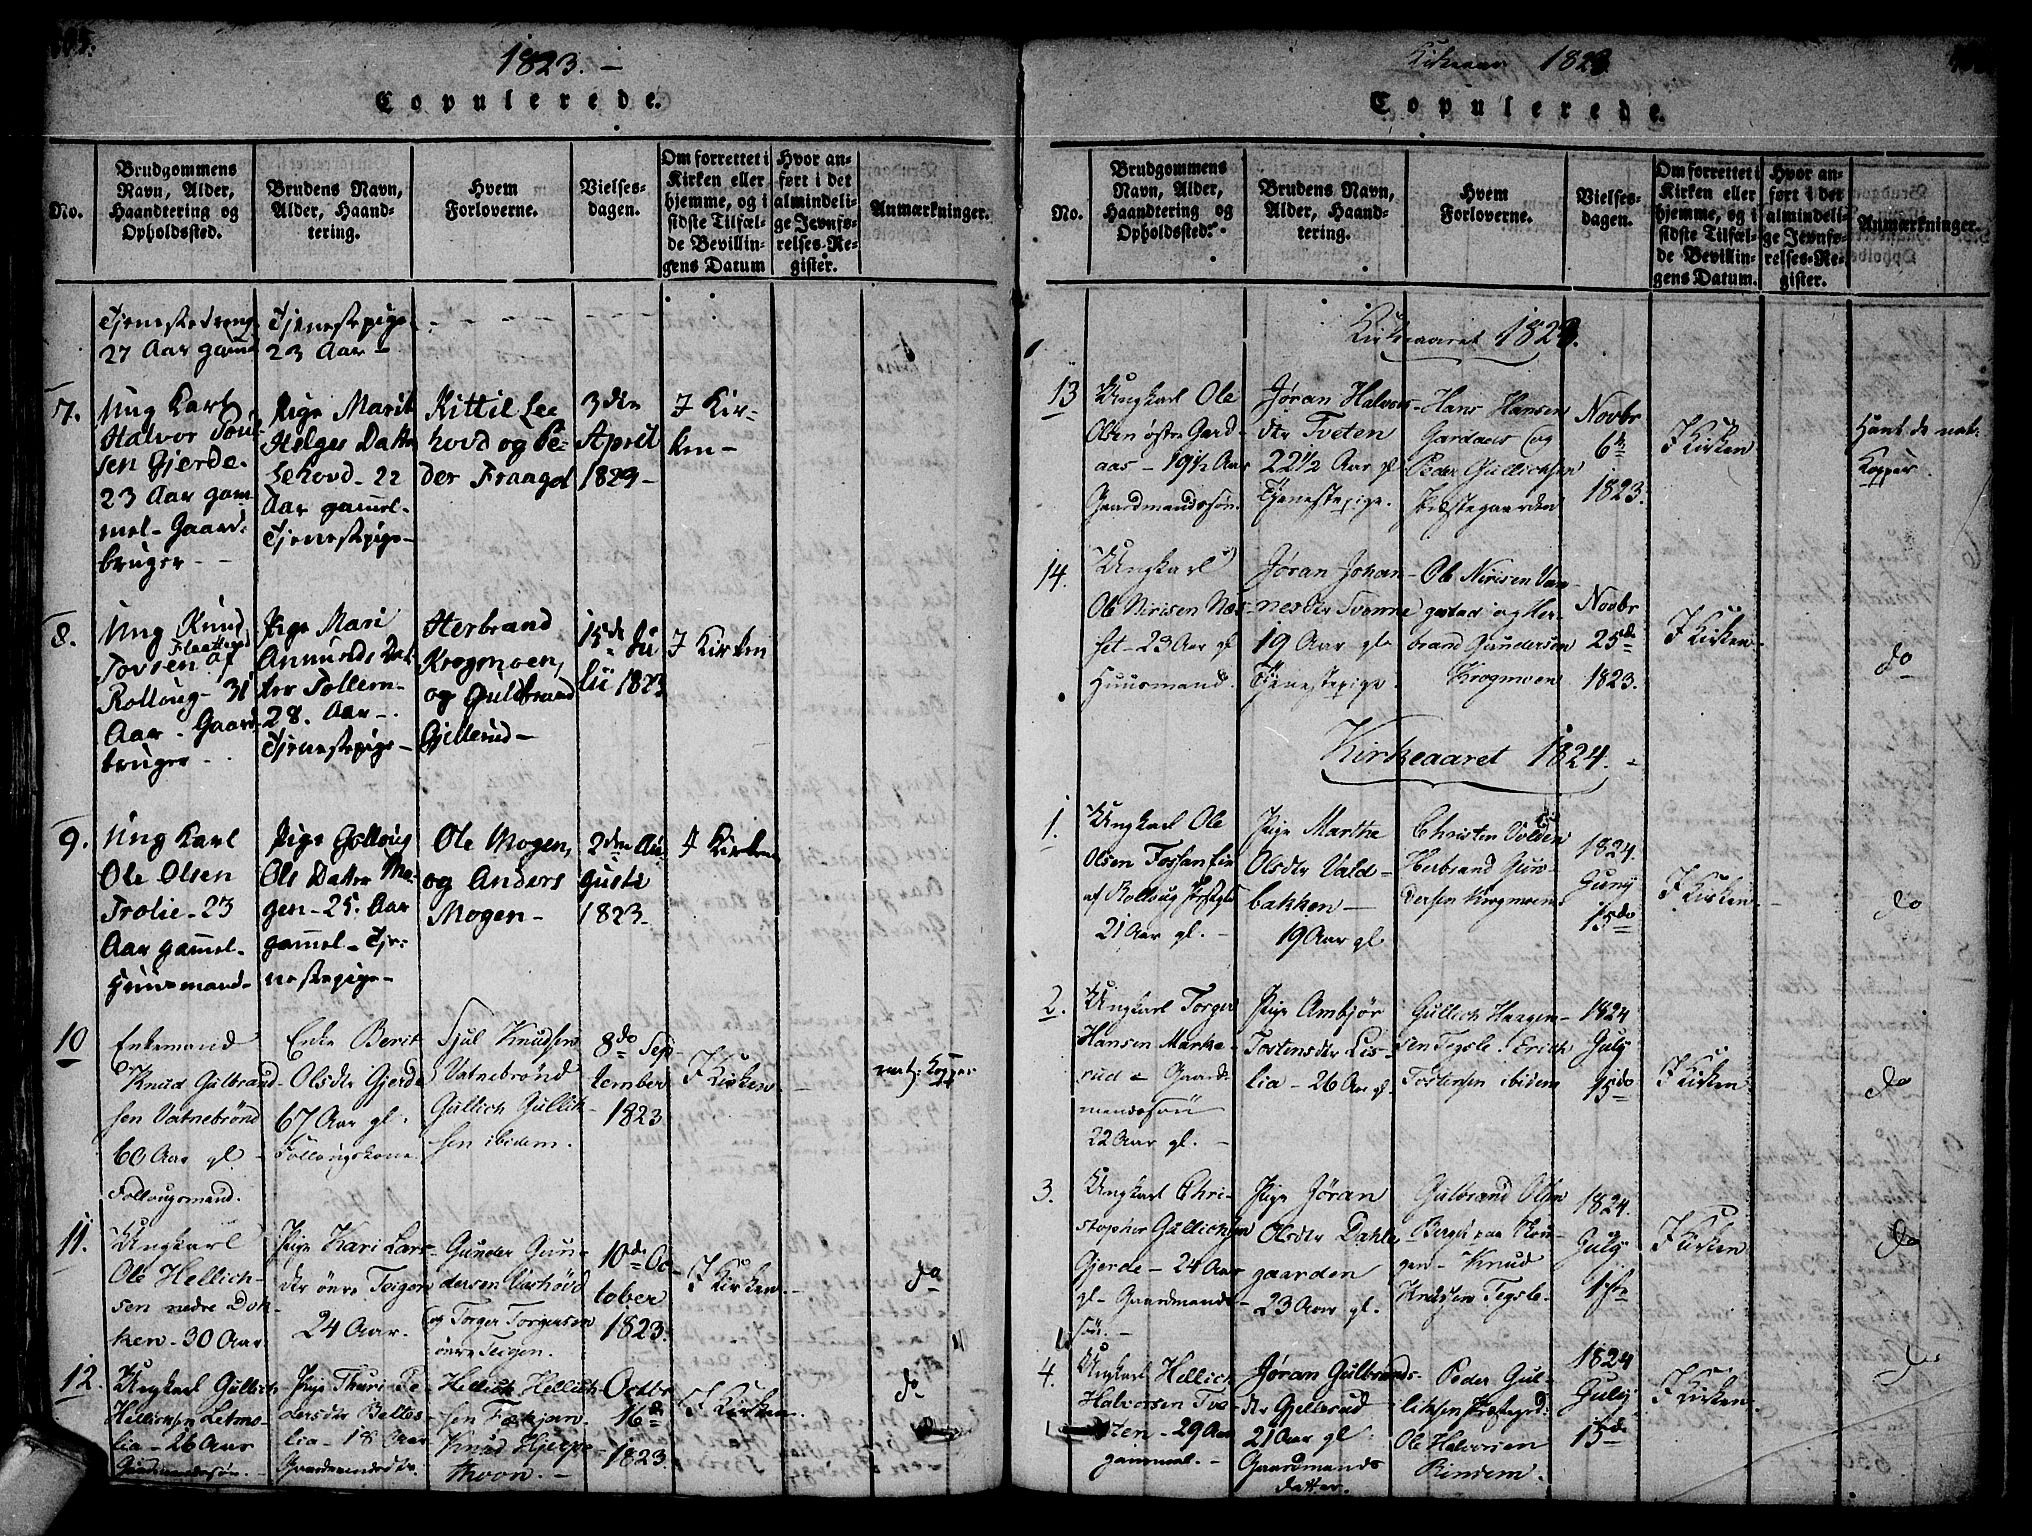 1823. –
Copulerede.
No.
Brudgommens
Navn, Alder,
Haandtering og
Opholdssted.
Brudens Navn,
Alder, Haand-
tering.
Hvem
Forloverne.
Vielses-
dagen.
Om forrettet i
Kirken eller
hjemme, og i
sidste Tilfæl-
de Bevillin-
gens Datum
Hvor an-
ført i det
almindeli-
ge Jevnfø-
relses-Re-
gister.
Anmærkninger.
Tjenestedreng
27 Aar gamel
Tjenestepige
23 Aar –
7.
Ung Karl
Halvor
sen Gjerde.
23 Aar gam-
mel – Gaard-
bruger –
Pige Marit
Helges Datter
Lehovd – 22
Aar gamel –
Tjenestepige –
Kittil Lee
hovd og Pe-
der Fraagot
3die
April
1823 –
I Kir-
ken –
8.
Ung Knud
Flaatterud
Tovsen af
Rolloug – 31
Aar – Gaard-
bruger –
Pige Mari
Amunds Dat-
ter Tollem-
28. Aar –
Tjenestepige –
Herbrand
Krogmoen,
og Guldbrand
Gjellerud –
15de Ju
lii 1823
I Kirken
9.
Ung Karl
Ole Olsen
Trolie – 23
Aar gamel –
Huusmand –
Pige Golloug
Ols Datter Mo-
gen – 25. Aar
gamel – Tje-
nestepige –
Ole Mogen,
og Anders
Mogen –
2den Au
gusti
1823.
I Kirken
10
Enkemand
Knud Gulbrand-
sen Vatnebrönd
60 Aar gl.
Follougsmand.
Enke Berit
Olsdtr Gjerde
67 Aar gl.
Follougskone
Sjul Knudsen
Vatnebrönd
Gullich Gullik-
sen ibidem.
8de Sep-
tember
1823
I Kirken
nat. Kopper
11.
Ungkarl
Ole Hellich-
sen nedre Dok-
ken – 30 Aar
Pige Kari Lars-
dtr övre Teigen
24 Aar.
Gunder Gun-
dersen
og Torger Torgersen
övre Teigen.
10de Oc
tober
1823.
I Kirken.
do
12.
Ungkarl Gullich
Hellichsen Letmo-
lia – 26 Aar
Gaardmandssön. –
Pige Thuri Pe-
dersdtr Beltes-
lia – 18 Aar
Gaardmandsdtr.
Hellich Hellich-
sen
Knud Hjerpe-
moen. –
Octbr
16de
1823.
I Kirken.
do
Kirkeaar 1823
Copulerede.
No.
Brudgommens
Navn, Alder,
Haandtering og
Opholdssted.
Brudens Navn,
Alder, Haand-
tering.
Hvem
Forloverne.
Vielses-
dagen.
Om forrettet i
Kirken eller
hjemme, og i
sidste Tilfæl-
de Bevillin-
gens Datum.
Hvor an-
ført i det
almindeli-
ge Jevnfø-
relses-Re-
gister.
Anmærkninger.
Kirkeaaret 1823.
13
Ungkarl Ole
Olsen östre Gard-
aas – 19½ Aar
Gaardmandssön.
Jöran Halvors-
dtr Tveten
22½ Aar gl
Tjenestepige.
Hans Hansen
Gardaas og
Peder Gullichsen
Præstegaarden
Novbr
6te
1823.
I Kirken
Havt de nat.
Kopper
14.
Ungkarl
Ole Nirisen Næs-
set – 23 Aar gl
Huusmand.
Jöran Johan-
nesdtr Svenne
19 Aar gl
Tjenestepige.
Ole Nirisen Vam-
gestad og Her-
brand Gundersen
Krogmoen
Novbr
25de
1823.
I Kirken
do
Kirkeaaret 1824. –
1.
Ungkarl Ole
Olsen
af Rolloug Præstgjeld
21 Aar gl. –
Pige Marthe
Olsdtr Vald-
bakken –
19 Aar gl
Christen Volden
Herbrand Gun-
dersen Krogmoen
1824.
Junij
15de
I Kirken
do
2.
Ungkarl Torger
Hansen Marke-
rud – Gaard-
mandssön
22 Aar gl.
Pige Ambjör
Tostensdtr Lis-
lia – 26 Aar gl.
Gullich Haagen-
sen Tegsle. Erich
Tostensen ibidem
1824
Julij
15de
I Kirken
do
3.
Ungkarl Chri-
stopher Gullichsen
Gjerde – 24 Aar
gl – Gaardmands-
sön. –
Pige Jöran
Olsdtr Dahle
gaarden
23 Aar gl.
Gulbrand Olsen
Berget paa Rou-
gen – Knud
Knudsen Tegsle.
1824.
Julij
1ste
I Kirken
do
4.
Ungkarl Hellich
Halvorsen Tve-
ten – 29 Aar
gammel. –
Jöran Gulbrands-
dtr Gjellerud
21 Aar gl.
Gaardmands
datter.
Peder Gul-
liksen Præstegrd.
Ole Halvorsen
Rindem.
1824
Julij
15de
I Kirken